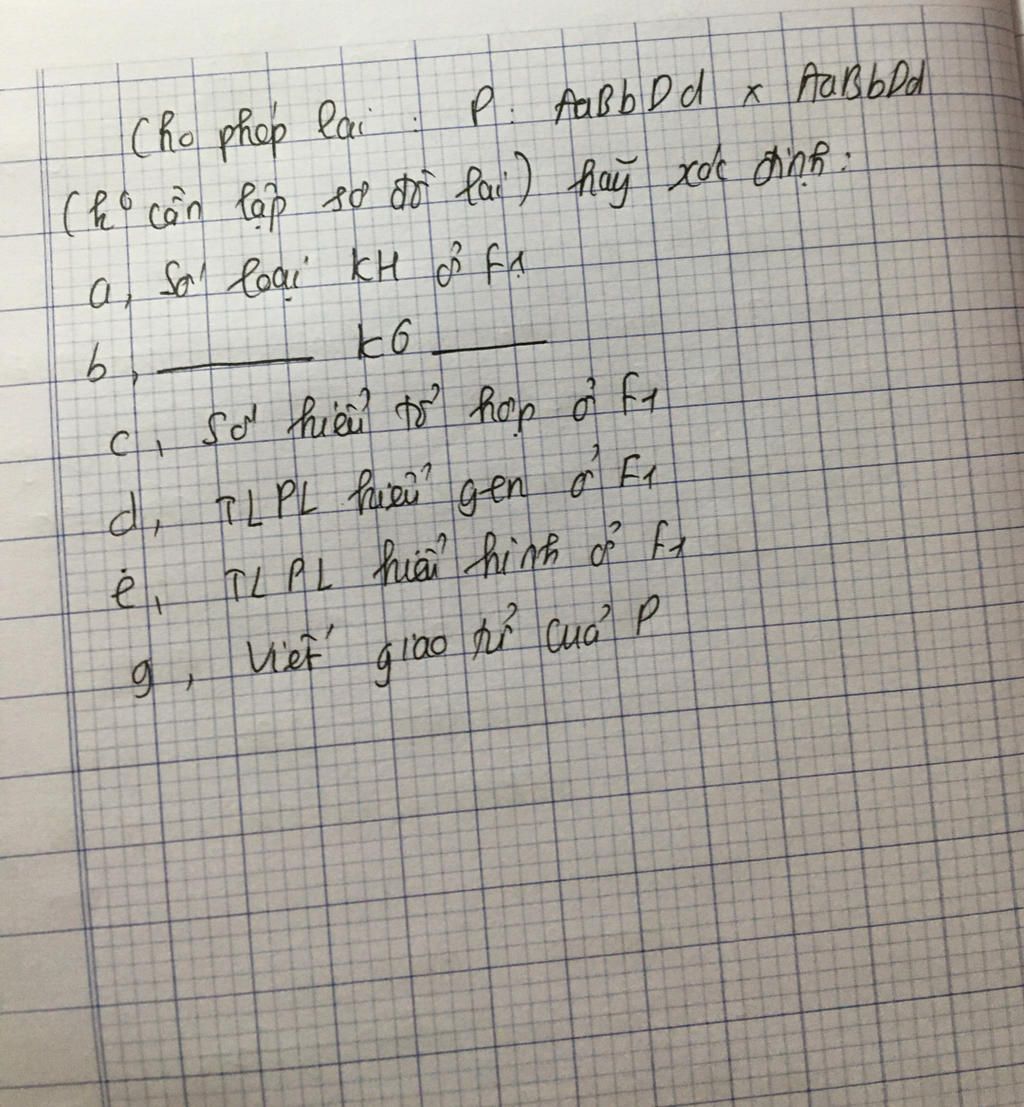 Cho phép lai : P: AaBbDd x AaBbDd
(kô cần lập sơ đồ lai) hãy xác định:
a, Số loại KH ở F1
b, ______ KG ______
c, Số kiểu tổ hợp ở F1
d, TLPL kiểu gen ở F1
e, TLPL kiểu hình ở F1
g, Viết giao tử của P